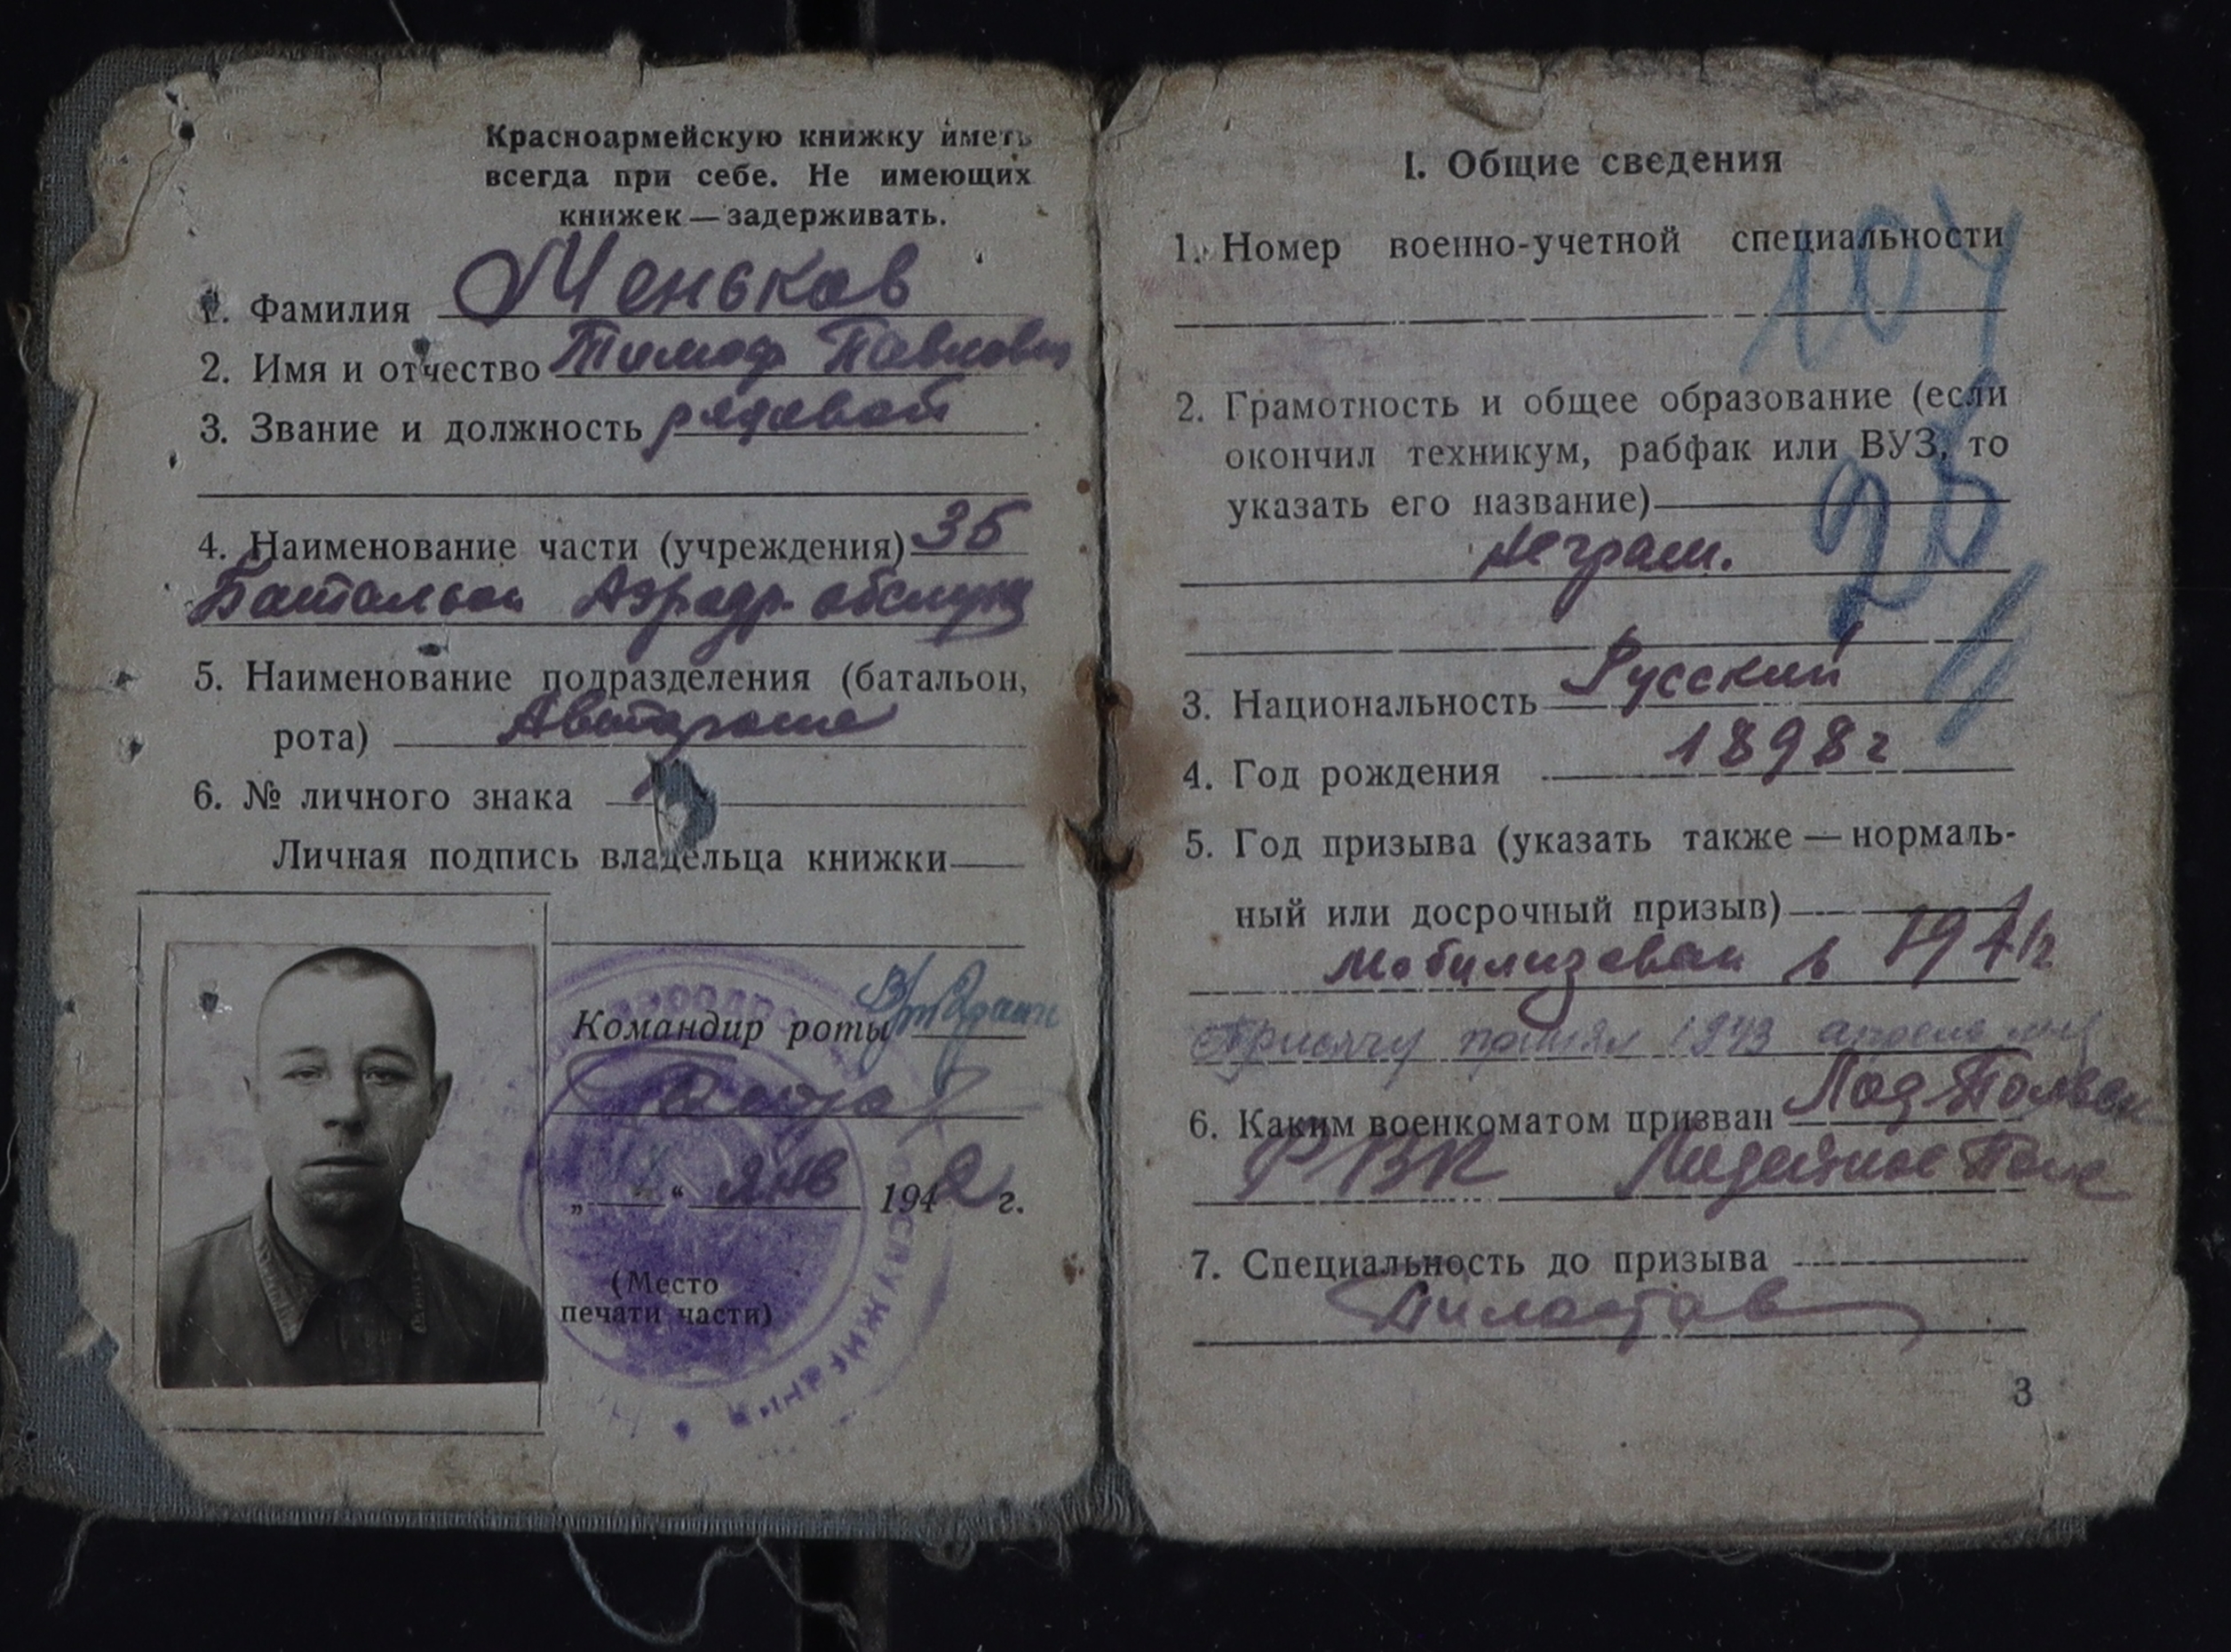 Красноармейскую книжку иметь
всегда при себе. Не имеющих
книжек — задерживать.
1. Фамилия Меньков
2. Имя и отчество Тимоф Павлович
3. Звание и должность рядовой
4. Наименование части (учреждения) 35
Батальон Аэродр. обслуж
5. Наименование подразделения (батальон,
рота) Авторота
6. № личного знака
Личная подпись владельца книжки
Командир роты
„ “ янв 1942 г.
(Место
печати части)
ОБСЛУЖИВАНИЯ
I. Общие сведения
1. Номер военно-учетной специальности
104
2. Грамотность и общее образование (если
окончил техникум, рабфак или ВУЗ, то
указать его название)
26
Неграм.
3. Национальность Русский
4. Год рождения 1898 г
5. Год призыва (указать также — нормаль-
ный или досрочный призыв)
Мобилизован в 1941 г
Присягу принял 1943 апрель
6. Каким военкоматом призван Лод-Польск
РВК Лодейное Поле
7. Специальность до призыва
Пилостав
3